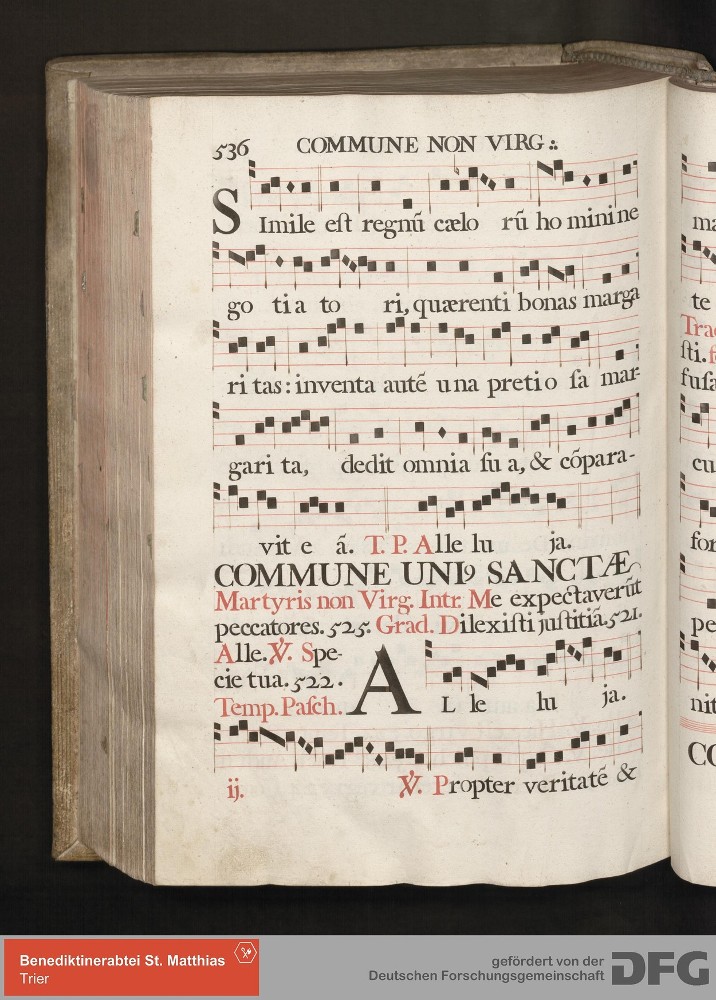 536 COMMUNE NON VIRG:.
SImile eſt regnũ cælo rũ ho mini ne
go tia to ri, quærenti bonas marga
ri tas: inventa autẽ una pretio ſa mar-
gari ta, dedit omnia ſu a, & cõpara-
vit e ã. T. P. Alle lu ja.
COMMUNE UNIꝰ SANCTÆ
Martyris non Virg. Intr. Me expectaverũt
peccatores. 525. Grad. Dilexiſti juſtitiã. 521.
Alle. ℣. Spe-
cie tua. 522.
Temp. Paſch. AL le lu ja.
ij. ℣. Propter veritatẽ &
ma
te
Trac
ſti. ſ
fuſa
cu
for
pe
nit
CO
Benediktinerabtei St. Matthias
Trier
gefördert von der
Deutschen Forschungsgemeinschaft
DFG